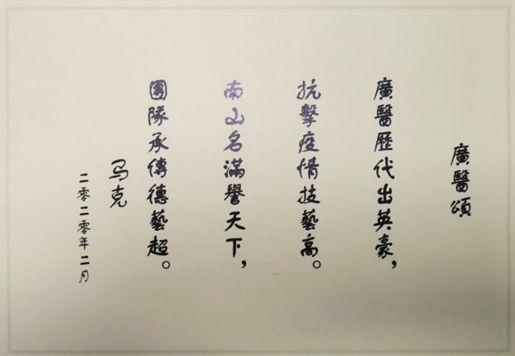 廣醫頌
廣醫歷代出英豪，
抗擊疫情技藝高。
南山名滿譽天下，
團隊承傳德藝超。
马克
二零二零年二月